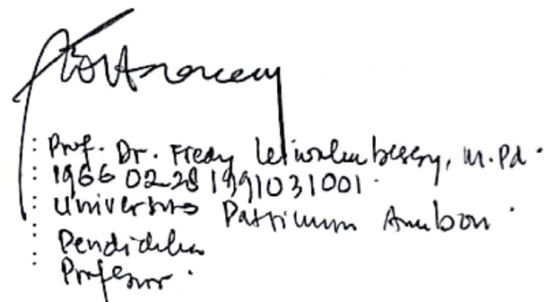 : Prof. Dr. Fredy Leiwakabessy, M.Pd.
: 1966 02 28 1991031001.
: Universitas Pattimura Ambon.
: Pendidikan
: Profesor.